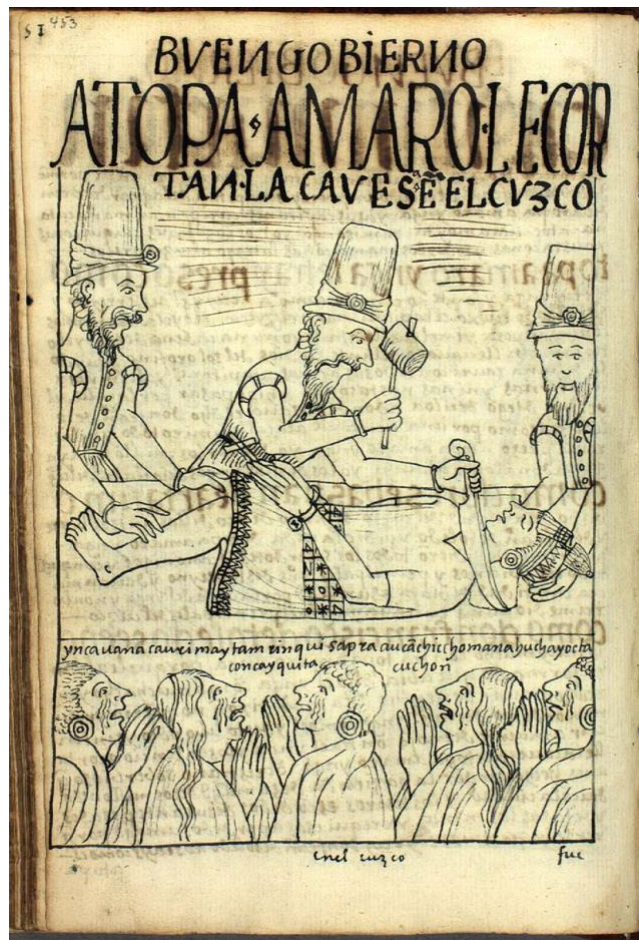 51 453
BVEN GOBIERNO
ATOPA·AMARO·LE COR
TAN·LA CAVESA Ē EL CVZCO
ynca uana cauri maytam rinqui sapra aucāchiccho mana huchayocta
concayquita cuchon
enel cuzco fue